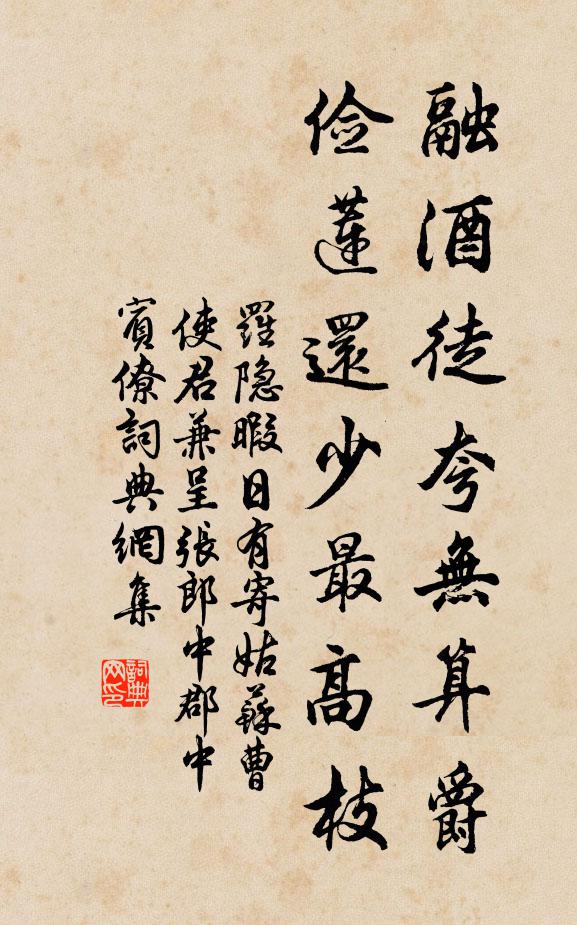 融酒徒夸無算爵
儉蓮還少最高枝
羅隐暇日有寄姑蘇曹
使君兼呈張郎中郡中
賓僚詞典網集
詞典
网印